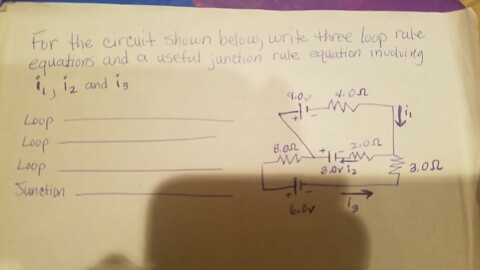 For the circuit shown below, write three loop rule
equations and a useful junction rule equation involving
i₁, i₂ and i₃
Loop
Loop
Loop
Junction
9.0v 4.0Ω
+ -
i₁
8.0Ω + - 2.0Ω
3.0v i₂
3.0Ω
+ -
6.0v i₃